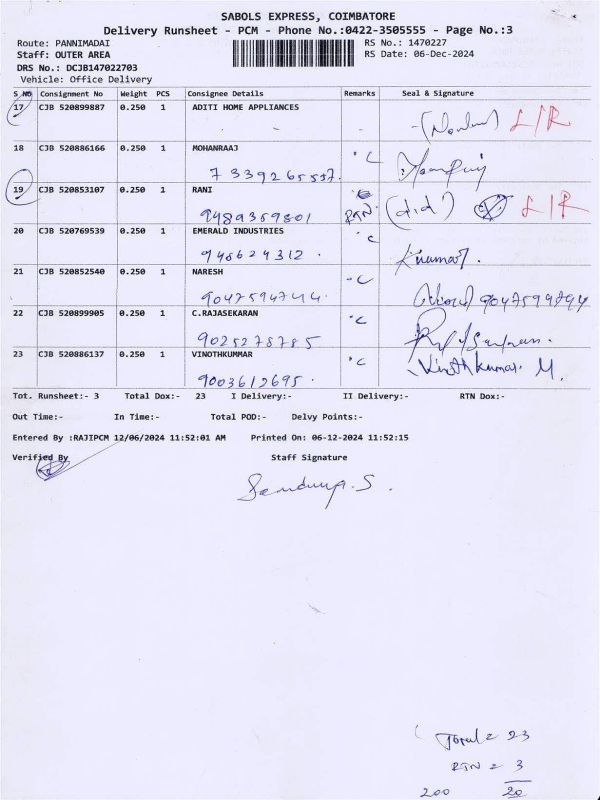 SABOLS EXPRESS, COIMBATORE
Delivery Runsheet - PCM - Phone No.:0422-3505555 - Page No.:3
Route: PANNIMADAI RS No.: 1470227
Staff: OUTER AREA RS Date: 06-Dec-2024
DRS No.: DCJB147022703
Vehicle: Office Delivery
S NO Consignment No Weight PCS Consignee Details Remarks Seal & Signature
17 CJB 520899887 0.250 1 ADITI HOME APPLIANCES
L/R
18 CJB 520886166 0.250 1 MOHANRAAJ
7339265557. C
19 CJB 520853107 0.250 1 RANI
9489359801 RTN (d.d) L/R
20 CJB 520769539 0.250 1 EMERALD INDUSTRIES
948624312. C Kumar.
21 CJB 520852540 0.250 1 NARESH
9047594744. C 9047599894
22 CJB 520899905 0.250 1 C.RAJASEKARAN
9025278785 C
23 CJB 520886137 0.250 1 VINOTHKUMMAR
9003612695. C Vinothkumar. M.
Tot. Runsheet:- 3 Total Dox:- 23 I Delivery:- II Delivery:- RTN Dox:-
Out Time:- In Time:- Total POD:- Delvy Points:-
Entered By :RAJIPCM 12/06/2024 11:52:01 AM Printed On: 06-12-2024 11:52:15
Verified By Staff Signature
Total = 23
RTN = 3
200 20